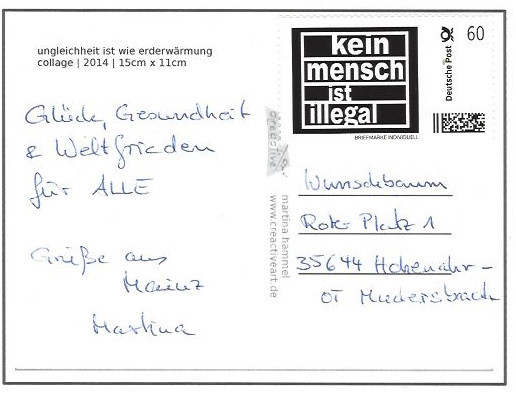 ungleichheit ist wie erderwärmung
collage | 2014 | 15cm x 11cm
kein
mensch
ist
illegal
Deutsche Post
60
BRIEFMARKE INDIVIDUELL
Glück, Gesundheit
& Weltfrieden
für ALLE
Grüße aus
Mainz
Martina
martina hammel
www.creactiveart.de
Wunschbaum
Rote-Platz 1
35644 Hohenahr-
OT Mudersbach